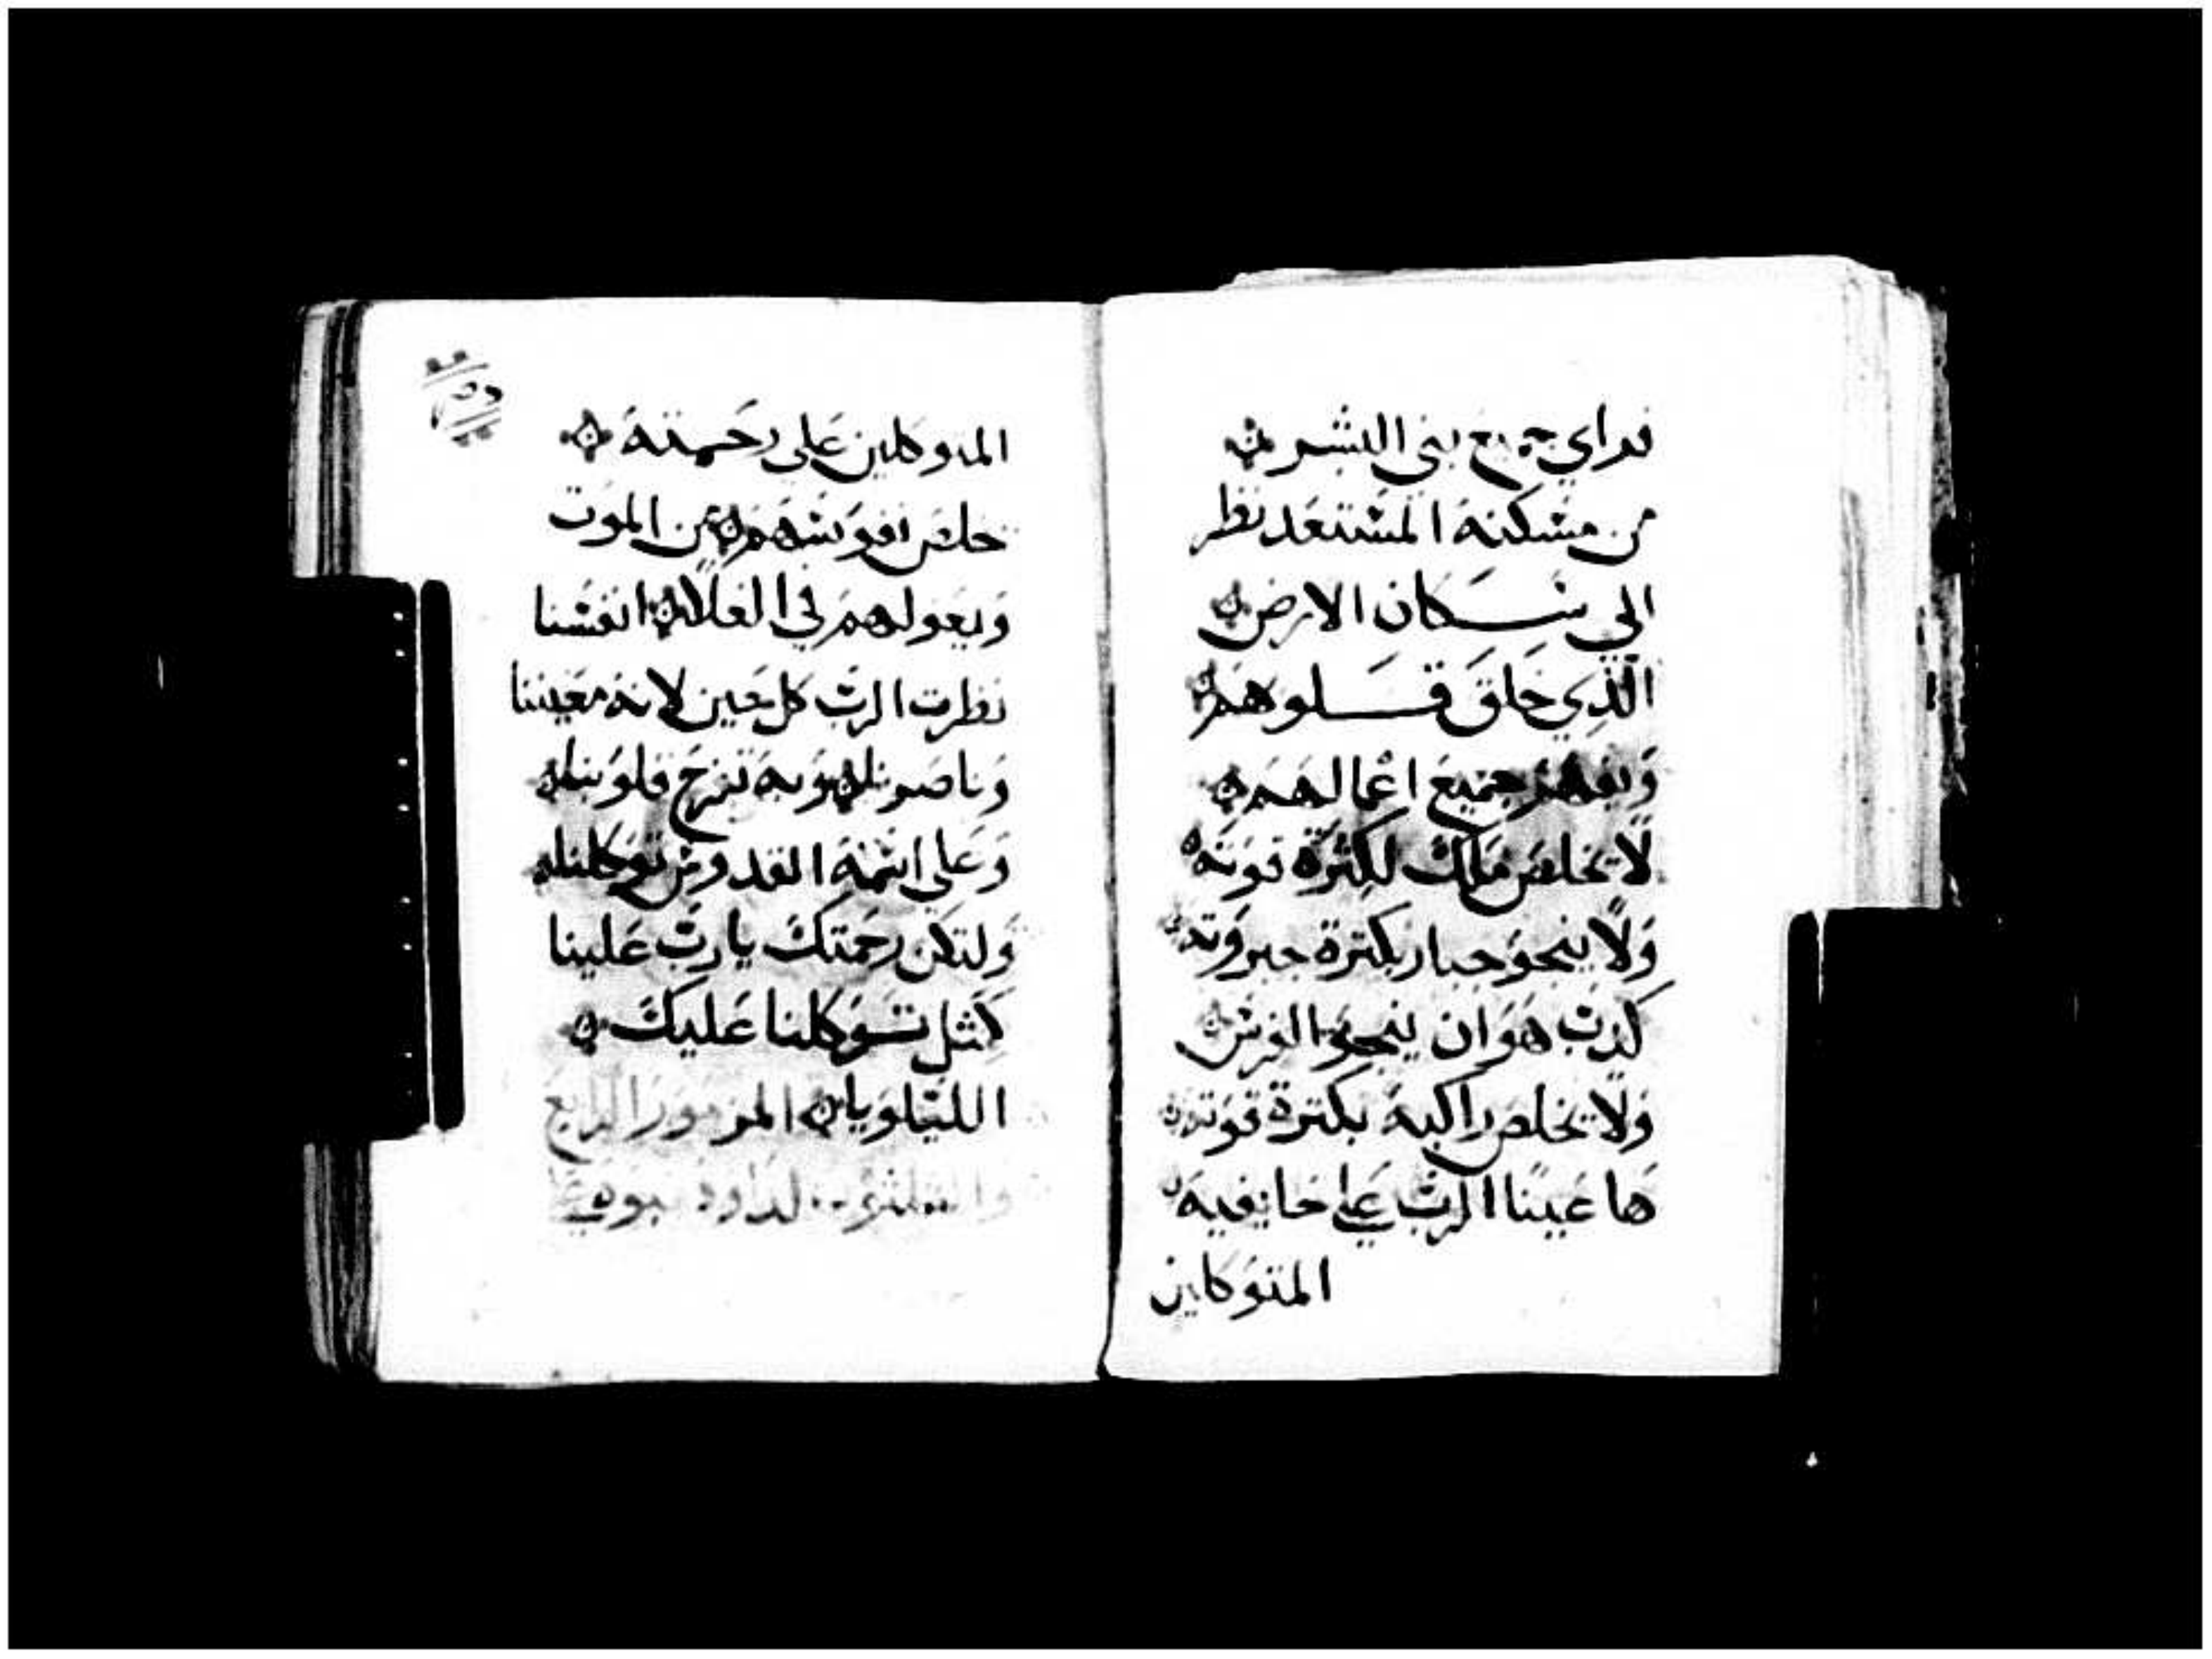 فراي جميع بني البشر
من مسكنه المستعد نظر
الي سكان الارض
الذي خلق قلوبهم
ويفهم جميع اعمالهم
لا يخلص ملك لكثرة قوته
ولا ينجو جبار بكثرة جبروته
كذب هو ان ينجو الفرس
ولا يخلص راكبه بكثرة قوته
ها عينا الرب علي خايفيه
المتوكلين
المتوكلين علي رحمته
خلص نفوسهم من الموت
ويعولهم في الغلا انفسنا
نظرت الرب كل حين لانه معيننا
وناصرنا وبه تفرح قلوبنا
وعلي اسمه القدوس توكلنا
ولتكن رحمتك يارب علينا
كمثل توكلنا عليك
الليلويا المزمور الرابع
والثلثون لداود